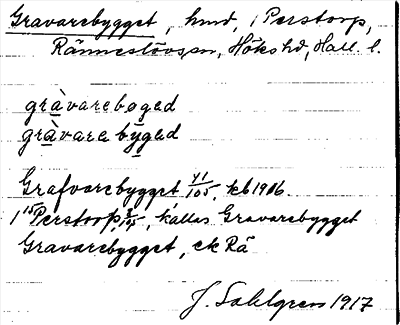 Gravarebygget, hmd, i Perstorp,
Ränneslövssn, Hökshd, Hall. l.
gràvarebogad
gràvare bỳgad
Grafvarebygget 41/105, kb 1906.
Perstorp, kallas Gravarebygget
Gravarebygget, ek Rä
J. Sahlgren 1917